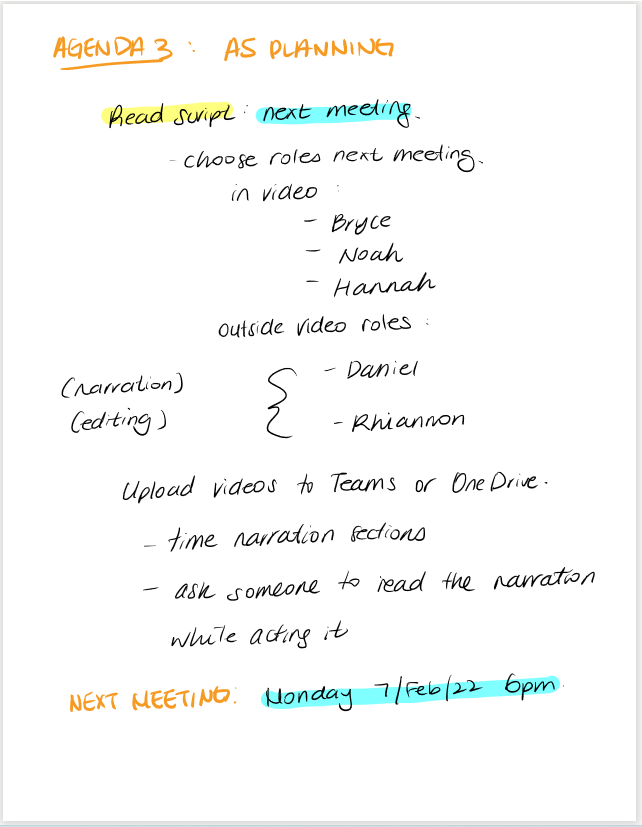 AGENDA 3 : AS PLANNING
Read script : next meeting.
- choose roles next meeting.
in video :
- Bryce
- Noah
- Hannah
outside video roles :
- Daniel
(narration)
(editing)
- Rhiannon
Upload videos to Teams or OneDrive.
- time narration sections
- ask someone to read the narration
while acting it
NEXT MEETING: Monday 7/Feb/22 6pm.